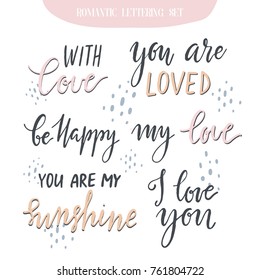 ROMANTIC LETTERING SET
WITH
love
you are
LOVED
be Happy
my love
YOU ARE MY
sunshine
I love
you
shutterstock.com · 761804722